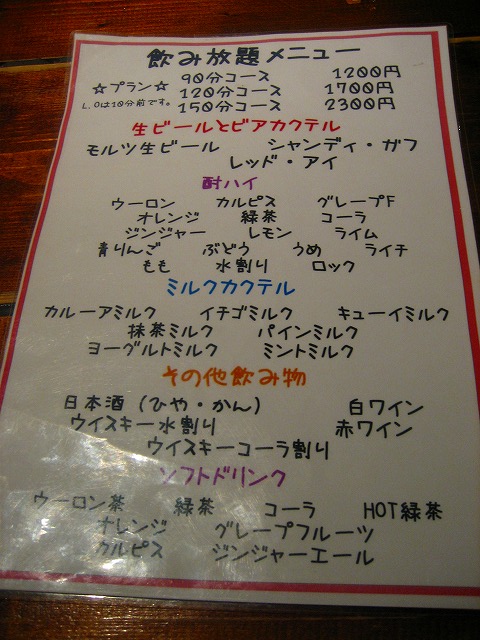 飲み放題メニュー
☆プラン☆ 90分コース 1200円
L.Oは10分前です。 120分コース 1700円
150分コース 2300円
生ビールとビアカクテル
モルツ生ビール シャンディ・ガフ
レッド・アイ
酎ハイ
ウーロン カルピス グレープF
オレンジ 緑茶 コーラ
ジンジャー レモン ライム
青りんご ぶどう うめ ライチ
もも 水割り ロック
ミルクカクテル
カルーアミルク イチゴミルク キューイミルク
抹茶ミルク パインミルク
ヨーグルトミルク ミントミルク
その他飲み物
日本酒（ひや・かん） 白ワイン
ウイスキー水割り 赤ワイン
ウイスキーコーラ割り
ソフトドリンク
ウーロン茶 緑茶 コーラ HOT緑茶
オレンジ グレープフルーツ
カルピス ジンジャーエール